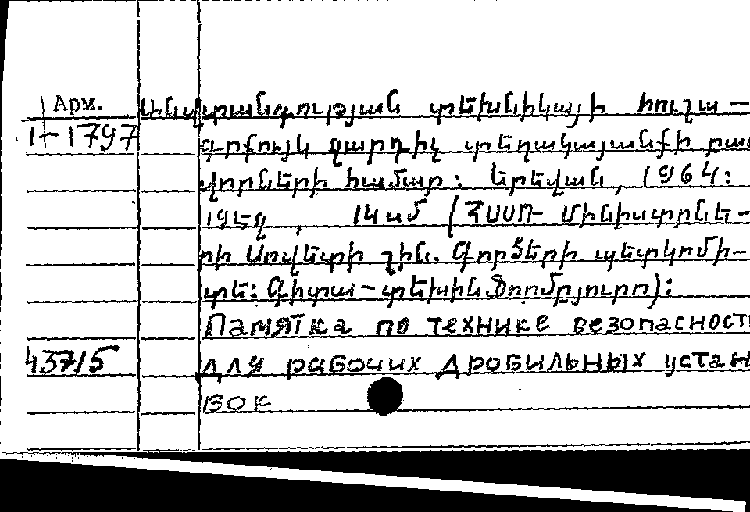 Арм.
1-1797
Անվտանգության տեխնիկայի հուշա-
գրքույկ ջարդիչ տեղակայանքի բա
վորների համար: Երեվան, 1964:
19եջ, 14սմ (ՀՍՍՌ Մինիստրնե-
րի Սովետի շին. Գործերի պետկոմի-
տե: Գիտա-տեխին.Ֆորմբյուրո):
Памятка по технике безопасност
43715
для рабочих дробильных устан
вок